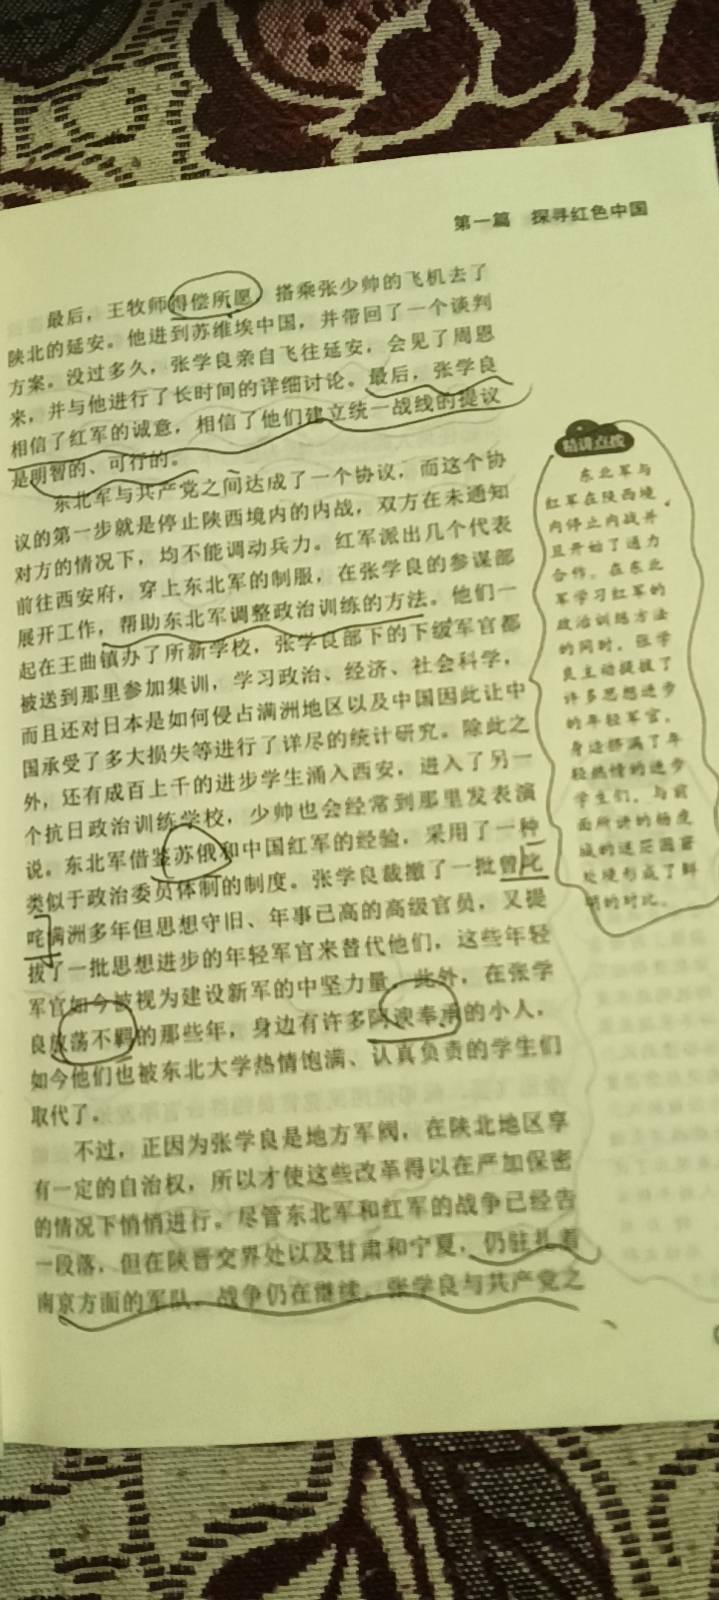 第一篇 探寻红色中国
最后，王牧师得偿所愿，搭乘张少帅的飞机去了
陕北的延安。他进到苏维埃中国，并带回了一个谈判
方案。没过多久，张学良亲自飞往延安，会见了周恩
来，并与他进行了长时间的详细讨论。最后，张学良
相信了红军的诚意，相信了他们建立统一战线的提议
是明智的、可行的。
东北军与共产党之间达成了一个协议，而这个协
议的第一步就是停止陕西境内的内战，双方在未通知
对方的情况下，均不能调动兵力。红军派出几个代表
前往西安府，穿上东北军的制服，在张学良的参谋部
展开工作，帮助东北军调整政治训练的方法。他们一
起在王曲镇办了所新学校，张学良部下的下级军官都
被送到那里参加集训，学习政治、经济、社会科学，
而且还对日本是如何侵占满洲地区以及中国因此让中
国承受了多大损失等进行了详尽的统计研究。除此之
外，还有成百上千的进步学生涌入西安，进入了另一
个抗日政治训练学校，少帅也会经常到那里发表演
说。东北军借鉴苏俄和中国红军的经验，采用了一种
类似于政治委员体制的制度。张学良裁撤了一批曾叱
咤满洲多年但思想守旧、年事已高的高级官员，又提
拔了一批思想进步的年轻军官来替代他们，这些年轻
军官如今被视为建设新军的中坚力量。此外，在张学
良放荡不羁的那些年，身边有许多阿谀奉承的小人，
如今他们也被东北大学热情饱满、认真负责的学生们
取代了。
不过，正因为张学良是地方军阀，在陕北地区享
有一定的自治权，所以才使这些改革得以在严加保密
的情况下悄悄进行。尽管东北军和红军的战争已经告
一段落，但在陕晋交界处以及甘肃和宁夏，仍驻扎着
南京方面的军队，战争仍在继续。张学良与共产党之
精讲点拨
东北军与
红军在陕西境
内停止内战并
且开始了通力
合作。在东北
军学习红军的
政治训练方法
的同时，张学
良主动提拔了
许多思想进步
的年轻军官，
身边挤满了年
轻热情的进步
学生们，与前
面所讲的
城的
处境形成了鲜
明的对比。